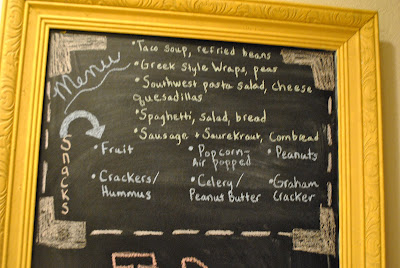 Menu
• Taco soup, refried beans
• Greek Style Wraps, peas
• Southwest pasta salad, cheese
quesadillas
• Spaghetti, salad, bread
• Sausage + Saurekraut, Cornbread
Snacks
• Fruit • Popcorn- • Peanuts
Air popped
• Crackers/ • Celery/ • Graham
Hummus Peanut Butter Cracker